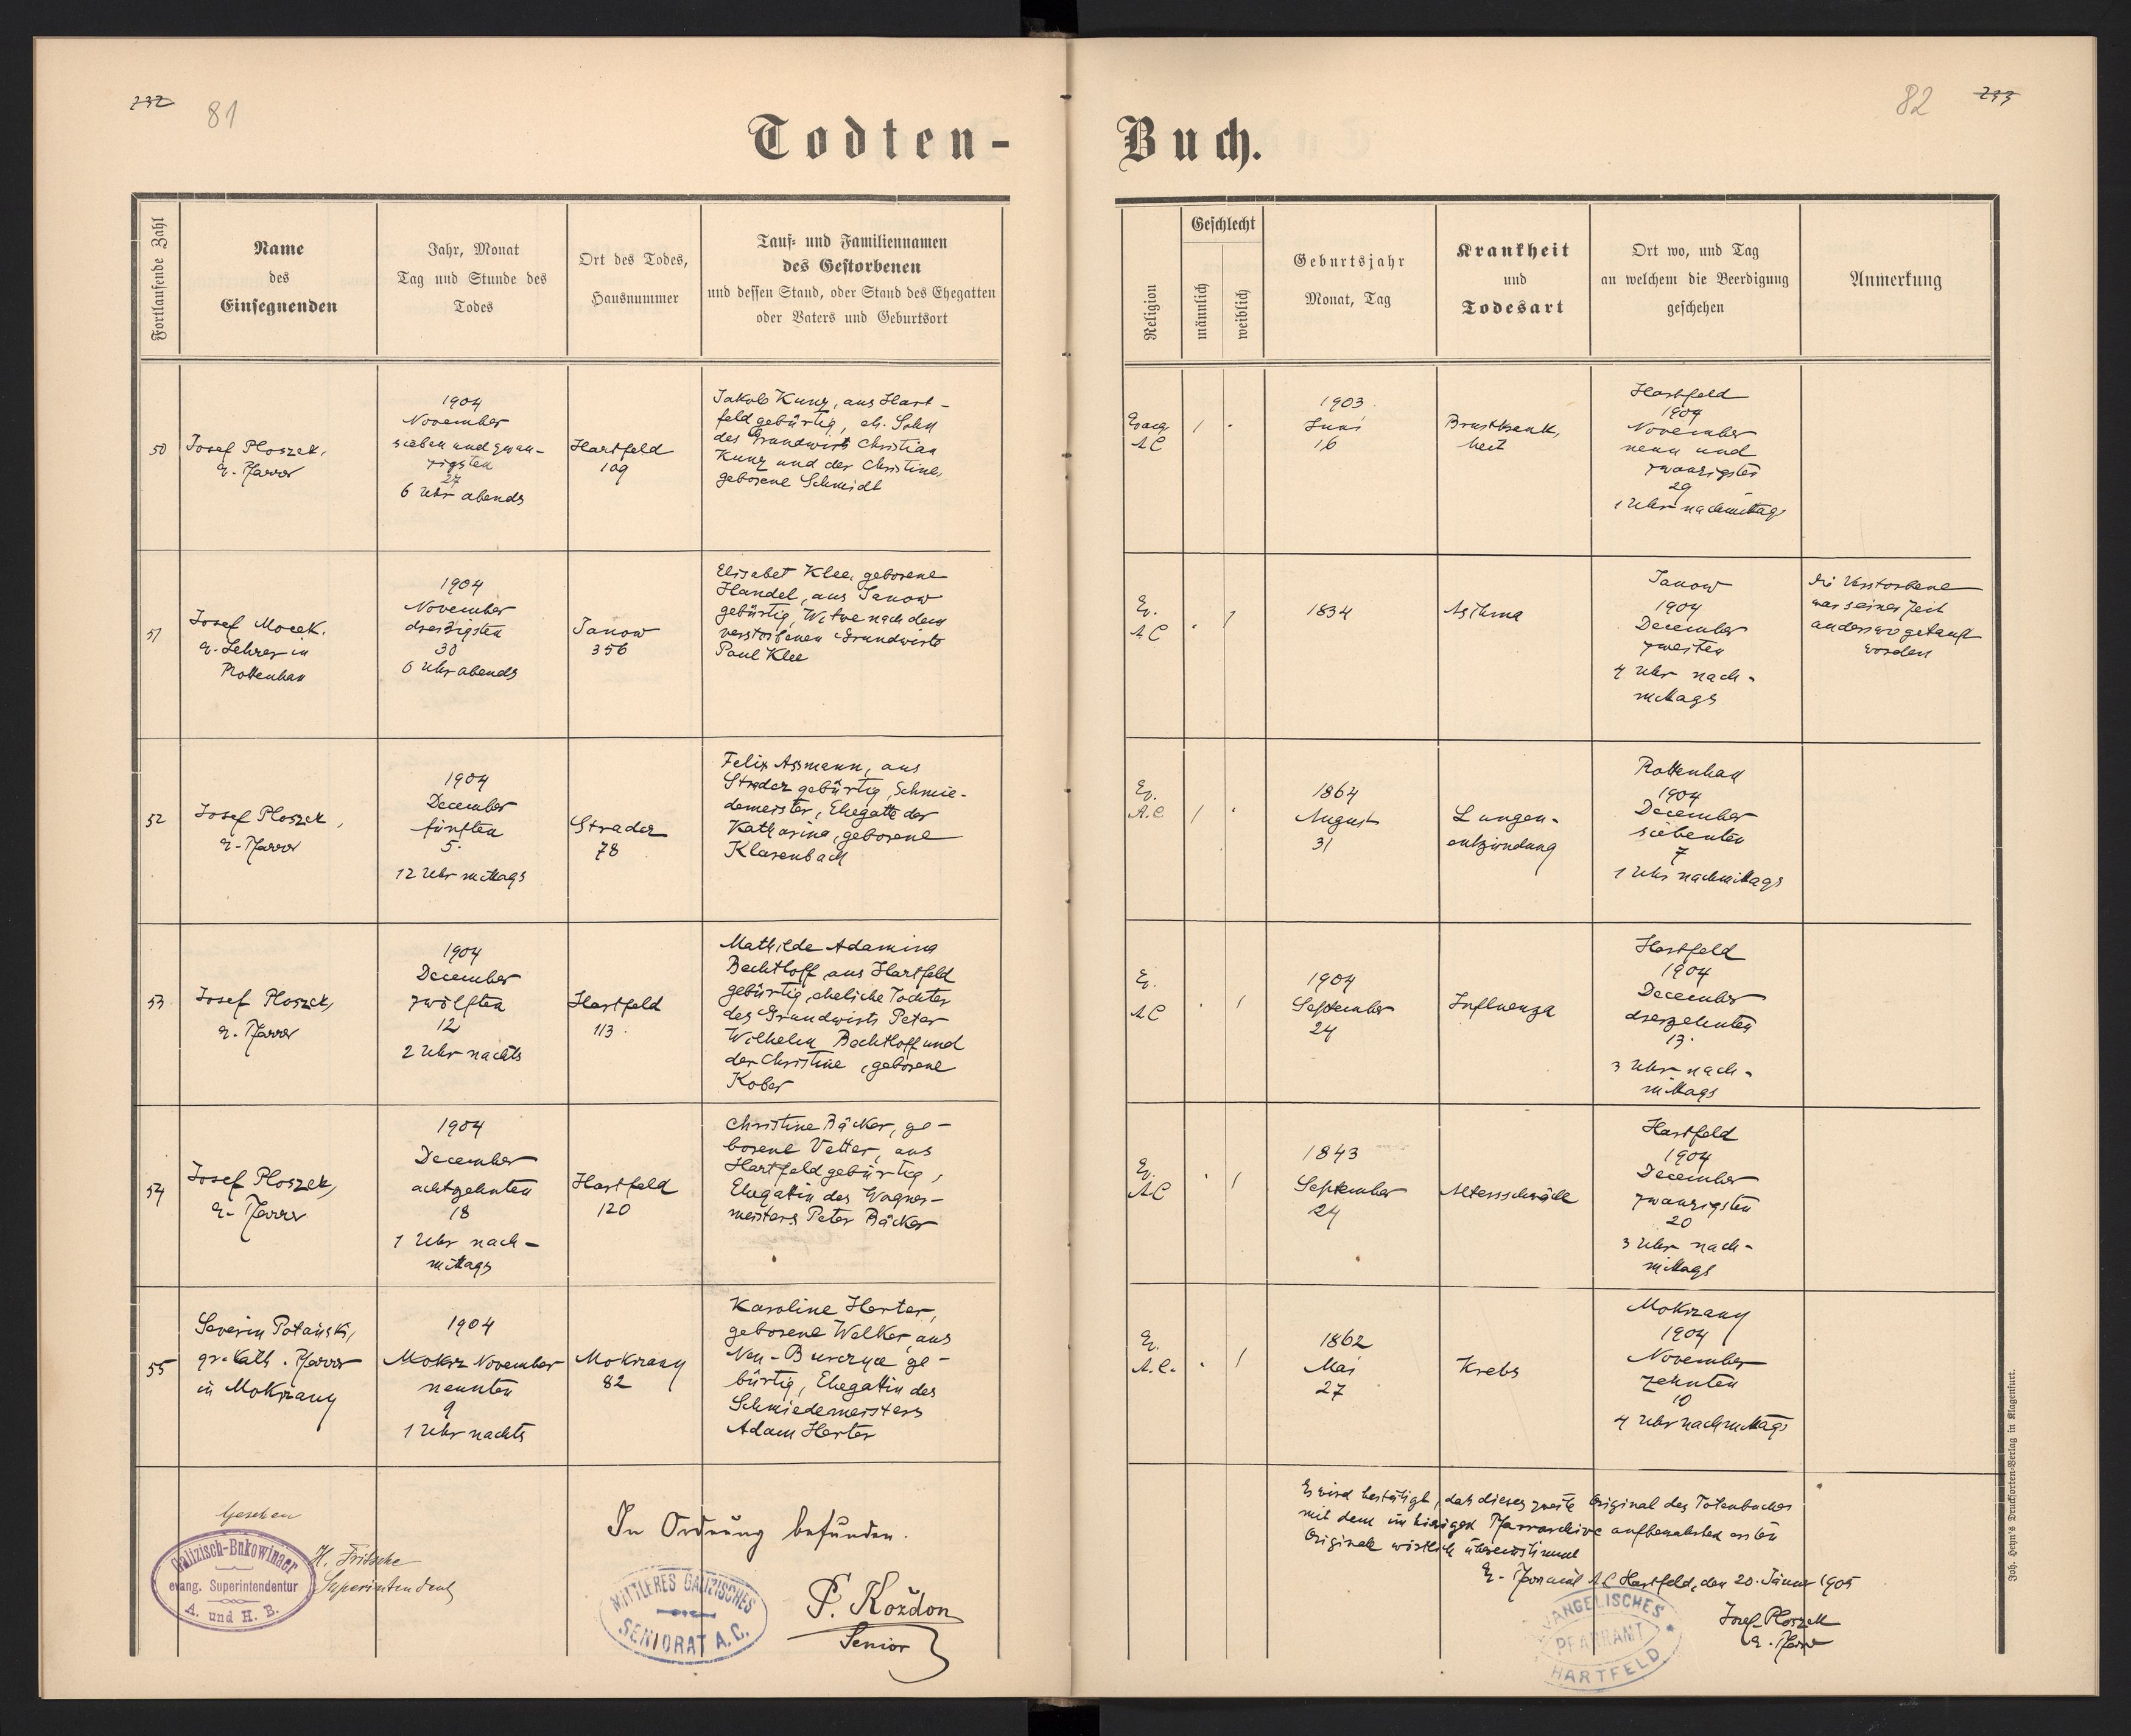 232
81
Todten-
Fortlaufende Zahl
Name
des
Einsegnenden
Jahr, Monat
Tag und Stunde des
Todes
Ort des Todes,
Hausnummer
Tauf- und Familiennamen
des Gestorbenen
und dessen Stand, oder Stand des Ehegatten
oder Vaters und Geburtsort
50
Josef Ploszek,
e. Pfarrer
1904
November
sieben und zwan-
zigsten
27
6 Uhr abends
Hartfeld
109
Jakob Kunz, aus Hart-
feld gebürtig, eh. Sohn
des Grundwirts Christian
Kunz und der Christine,
geborene Schmidt
51
Josef Mocek.
e. Lehrer in
Rottenhan
1904
November
dreizigsten
30
6 Uhr abends
Janow
356
Elisabet Klee, geborene
Handel, aus Janow
gebürtig, Witwe nach dem
verstorbenen Grundwirts
Paul Klee
52
Josef Ploszek,
e. Pfarrer
1904
December
fünften
5.
12 Uhr mittags
Stradez
78
Felix Assmann, aus
Stradez gebürtig, Schmie-
demeister, Ehegatte der
Katharina, geborene
Klasenbach
53
Josef Ploszek,
e. Pfarrer
1904
December
zwölften
12
2 Uhr nachts
Hartfeld
113.
Mathilde Adamina
Bechtloff, aus Hartfeld
gebürtig, eheliche Tochter
des Grundwirts Peter
Wilhelm Bechtloff und
der Christine, geborene
Kober
54
Josef Ploszek,
e. Pfarrer
1904
December
achtzehnten
18
1 Uhr nach-
mittags
Hartfeld
120
Christine Bäcker, ge-
borene Vetter, aus
Hartfeld gebürtig,
Ehegattin des Wagner-
meisters Peter Bäcker
55
Severin Potański,
gr. kath. Pfarrer
in Mokrzany
1904
Mokrz November
neunten
9
1 Uhr nachts
Mokrzany
82
Karoline Herter,
geborene Welker, aus
Neu-Burczyce ge-
bürtig, Ehegattin des
Schmiedemeisters
Adam Herter
Gesehen
Galizisch-Bukowinaer
evang. Superintendentur
A. und H. B.
H. Fritsche
Superintendent
In Ordnung befunden.
MITTLERES GALIZISCHES
SENIORAT A. C.
P. Kożdon
Senior
82
233
Buch.
Religion
Geschlecht
männlich
weiblich
Geburtsjahr
Monat, Tag
Krankheit
und
Todesart
Ort wo, und Tag
an welchem die Beerdigung
geschehen
Anmerkung
Evang
AC
1903
Juni
16
Brustkrank,
heit
Hartfeld
1904
November
neun und
zwanzigsten
29
1 Uhr nachmittags
Ev.
AC
1834
Asthma
Janow
1904
December
zweiten
4 Uhr nach-
mittags
die Verstorbene
war seiner Zeit
anderswo getauft
worden
Ev.
A.C
1864
August
31
Lungen-
entzündung
Rottenhan
1904
December
siebenten
7
1 Uhr nachmittags
Ev.
AC
1904
September
24
Influenza
Hartfeld
1904
December
dreizehnten
13.
3 Uhr nach-
mittags
Ev.
AC
1843
September
24
Altersschwäche
Hartfeld
1904
December
zwanzigsten
20
3 Uhr nach-
mittags
Ev.
A.C.
1862
Mai
27
Krebs
Mokrzany
1904
November
zehnten
10
4 Uhr nachmittags
Es wird bestätigt, daß dieses zweite Original des Totenbuches
mit dem im hiesigen Pfarrarchive aufbewahrten ersten
Originale wörtlich übereinstimmt
Ev. Pfarramt A.C. Hartfeld, den 20. Jänner 1905
Josef Ploszek
e. Pfarrer
EVANGELISCHES
PFARRAMT
HARTFELD
Joh. Heyn's Drucksorten-Verlag in Klagenfurt.